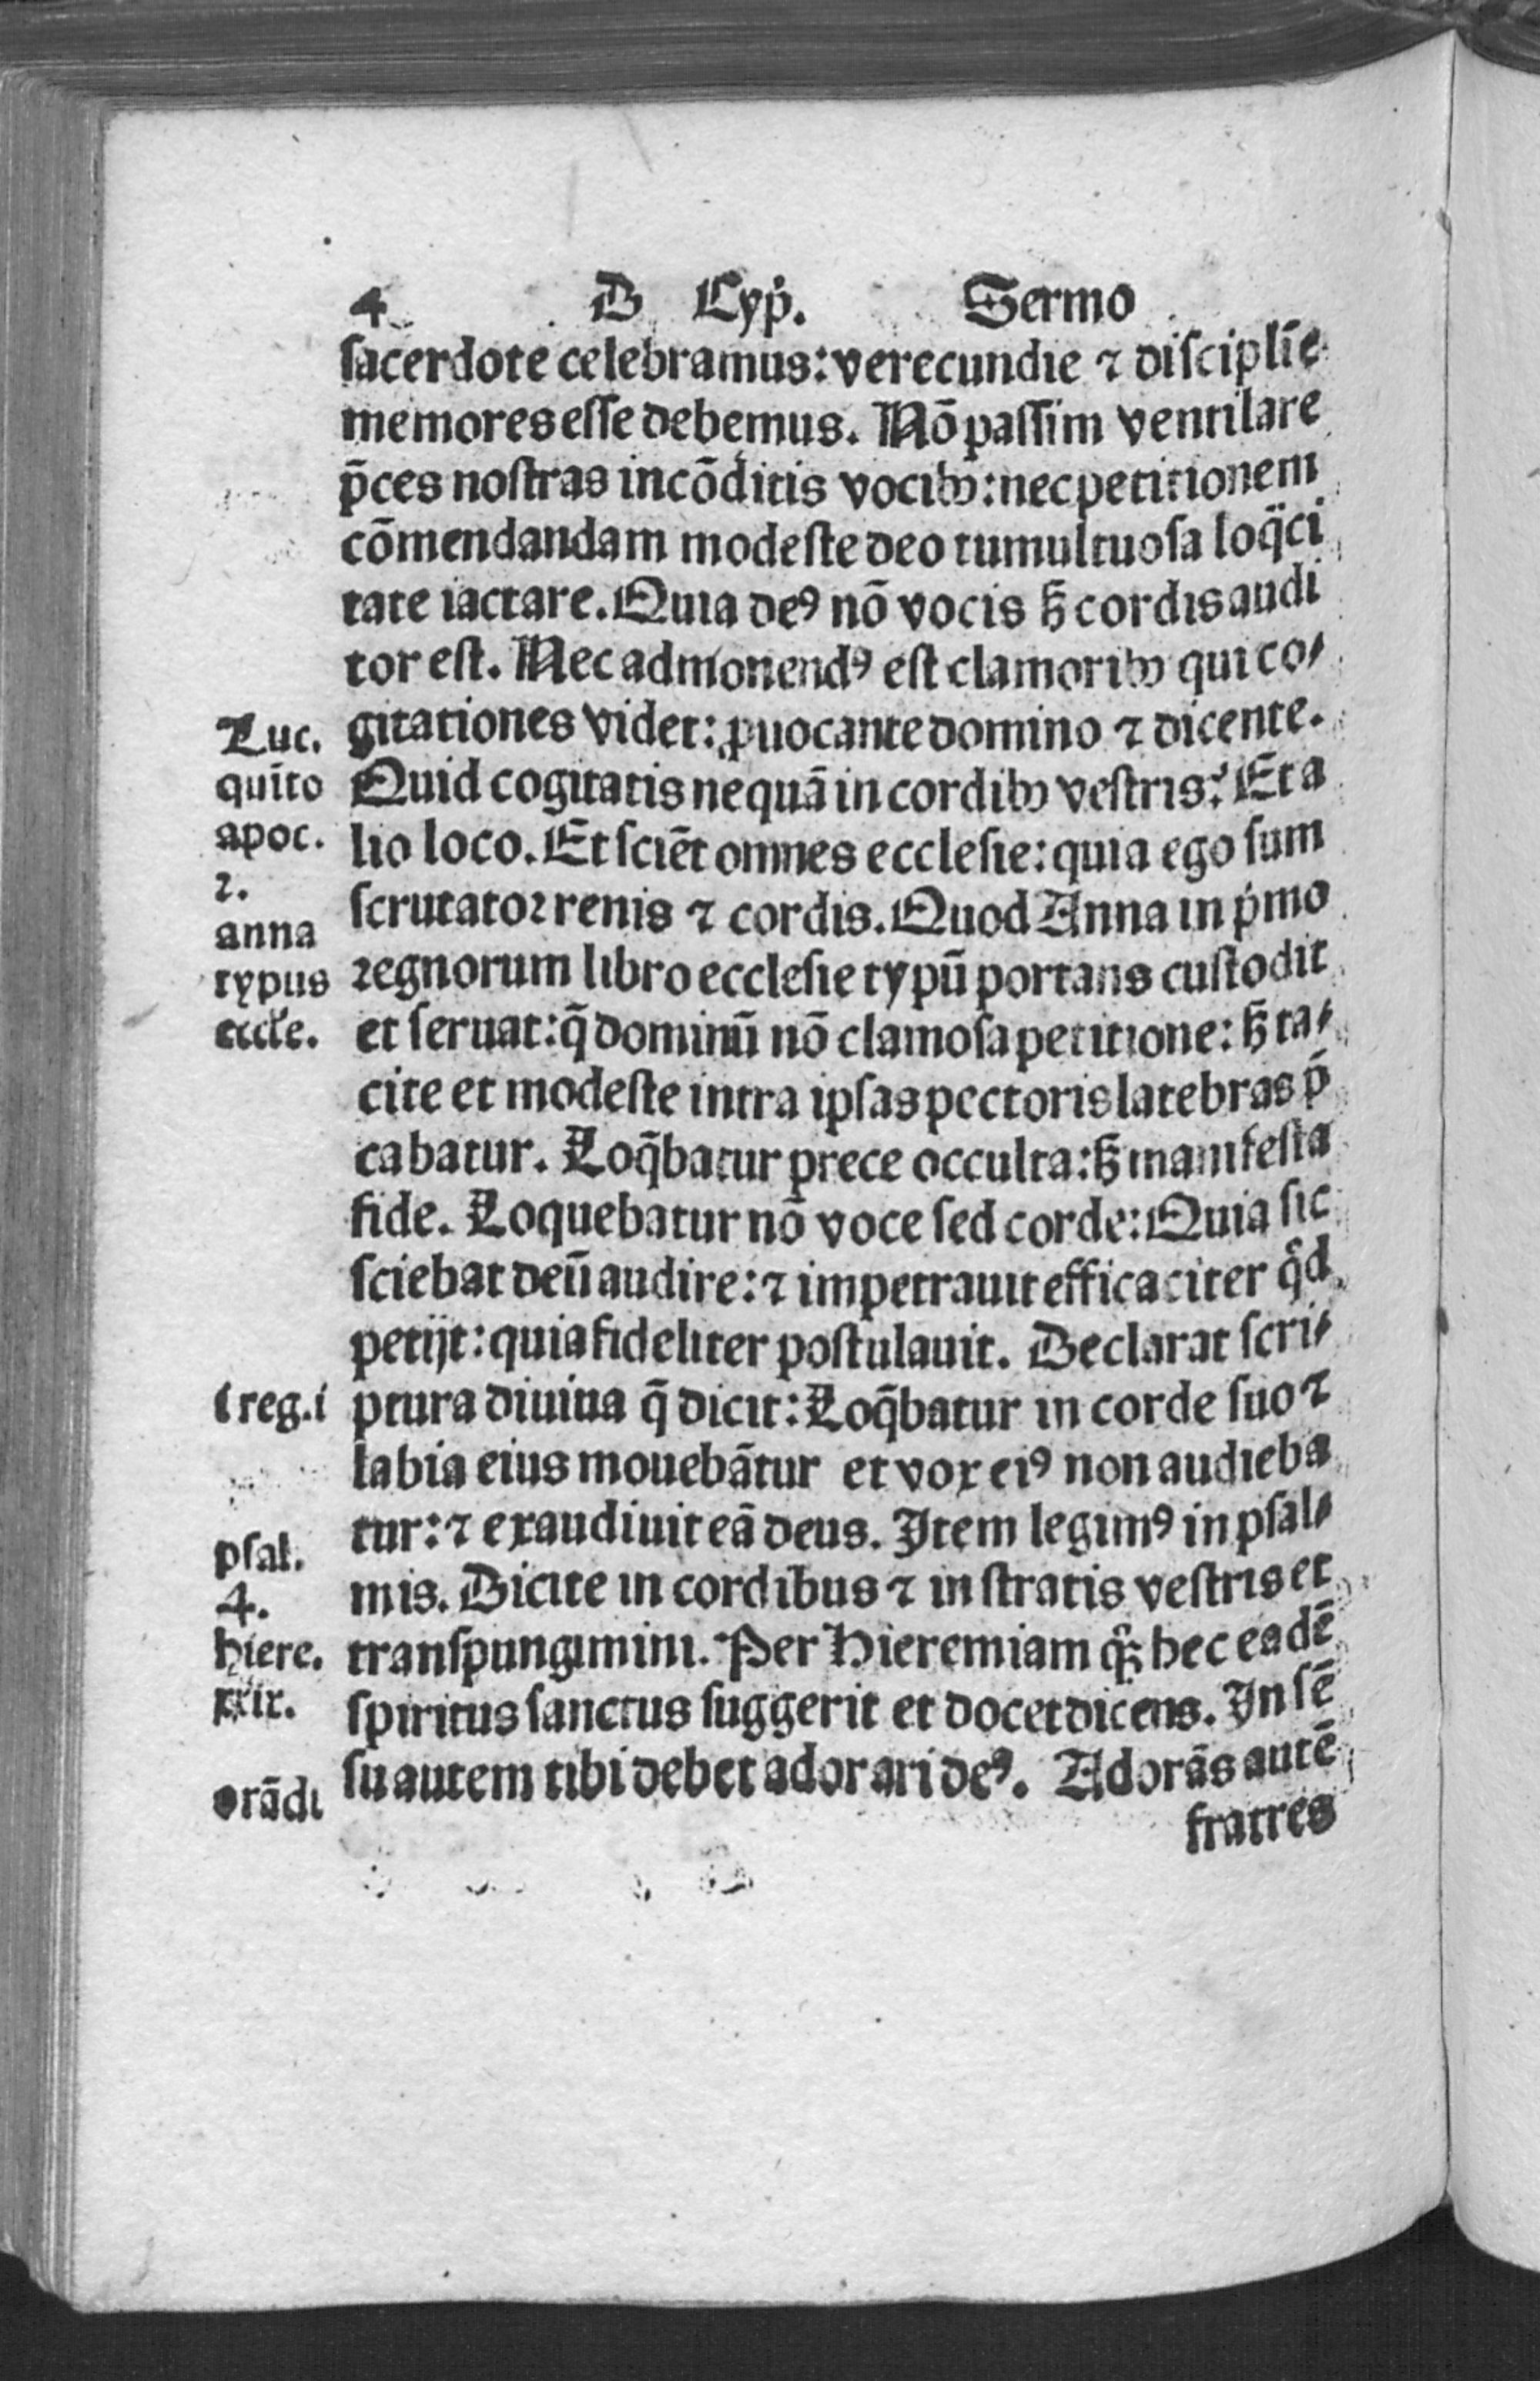 4 D Cyp̍. Sermo
ſacerdote celebramus: verecundie ⁊ diſciplīe
memores eſſe debemus. Nō paſſim ventilare
p̄ces noſtras incōditis vocibꝰ: nec petitionem
cōmendandam modeſte deo tumultuoſa loq̈ci
tate iactare. Quia deꝰ nō vocis ſꝫ cordis audi
tor eſt. Nec admonendꝰ eſt clamoribꝰ qui co⸗
Luc.
gitationes videt: ꝓuocante domino ⁊ dicente.
quīto
Quid cogitatis nequā in cordibꝰ veſtris? Et a
apoc.
lio loco. Et ſciēt omnes eccleſie: quia ego ſum
2.
ſcrutatoꝛ renis ⁊ cordis. Quod Anna in p̍mo
anna
typus
ꝛegnorum libro eccleſie typū portans cuſtodit
eccle.
et ſeruat: q̄ dominū nō clamoſa petitione: ſꝫ ta⸗
cite et modeſte intra ipſas pectoris latebras p̄
cabatur. Loq̄batur prece occulta: ſꝫ manifeſta
fide. Loquebatur nō voce ſed corde: Quia ſic
ſciebat deū audire: ⁊ impetrauit efficaciter qͦd
petijt: quia fideliter poſtulauit. Declarat ſcri⸗
1 reg. i
ptura diuina q̄ dicit: Loq̄batur in corde ſuo ⁊
labia eius mouebātur et vox eiꝰ non audieba
tur: ⁊ exaudiuit eā deus. Item legimꝰ in pſal⸗
pſal.
4.
mis. Dicite in cordibus ⁊ in ſtratis veſtris et
hiere.
tranſpungimini. Per Hieremiam qͦꝫ hec eadē
xxix.
ſpiritus ſanctus ſuggerit et docet dicens. In ſē
ſu autem tibi debet adorari deꝰ. Adorās autē
orādi
fratres